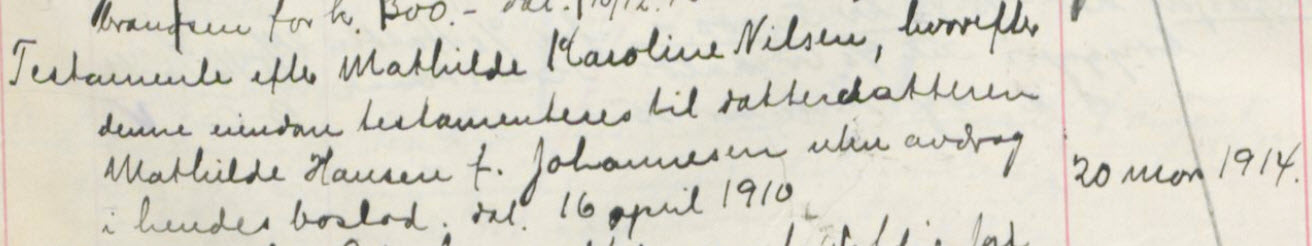 for kr. 1300.- dat.
Testamente efter Mathilde Karoline Nilsen, hvorefter
denne eiendom testamenteres til datterdatteren
Mathilde Hansen f. Johannesen uten avdrag
i hendes boslod. dat. 16 april 1910
20 mars 1914.